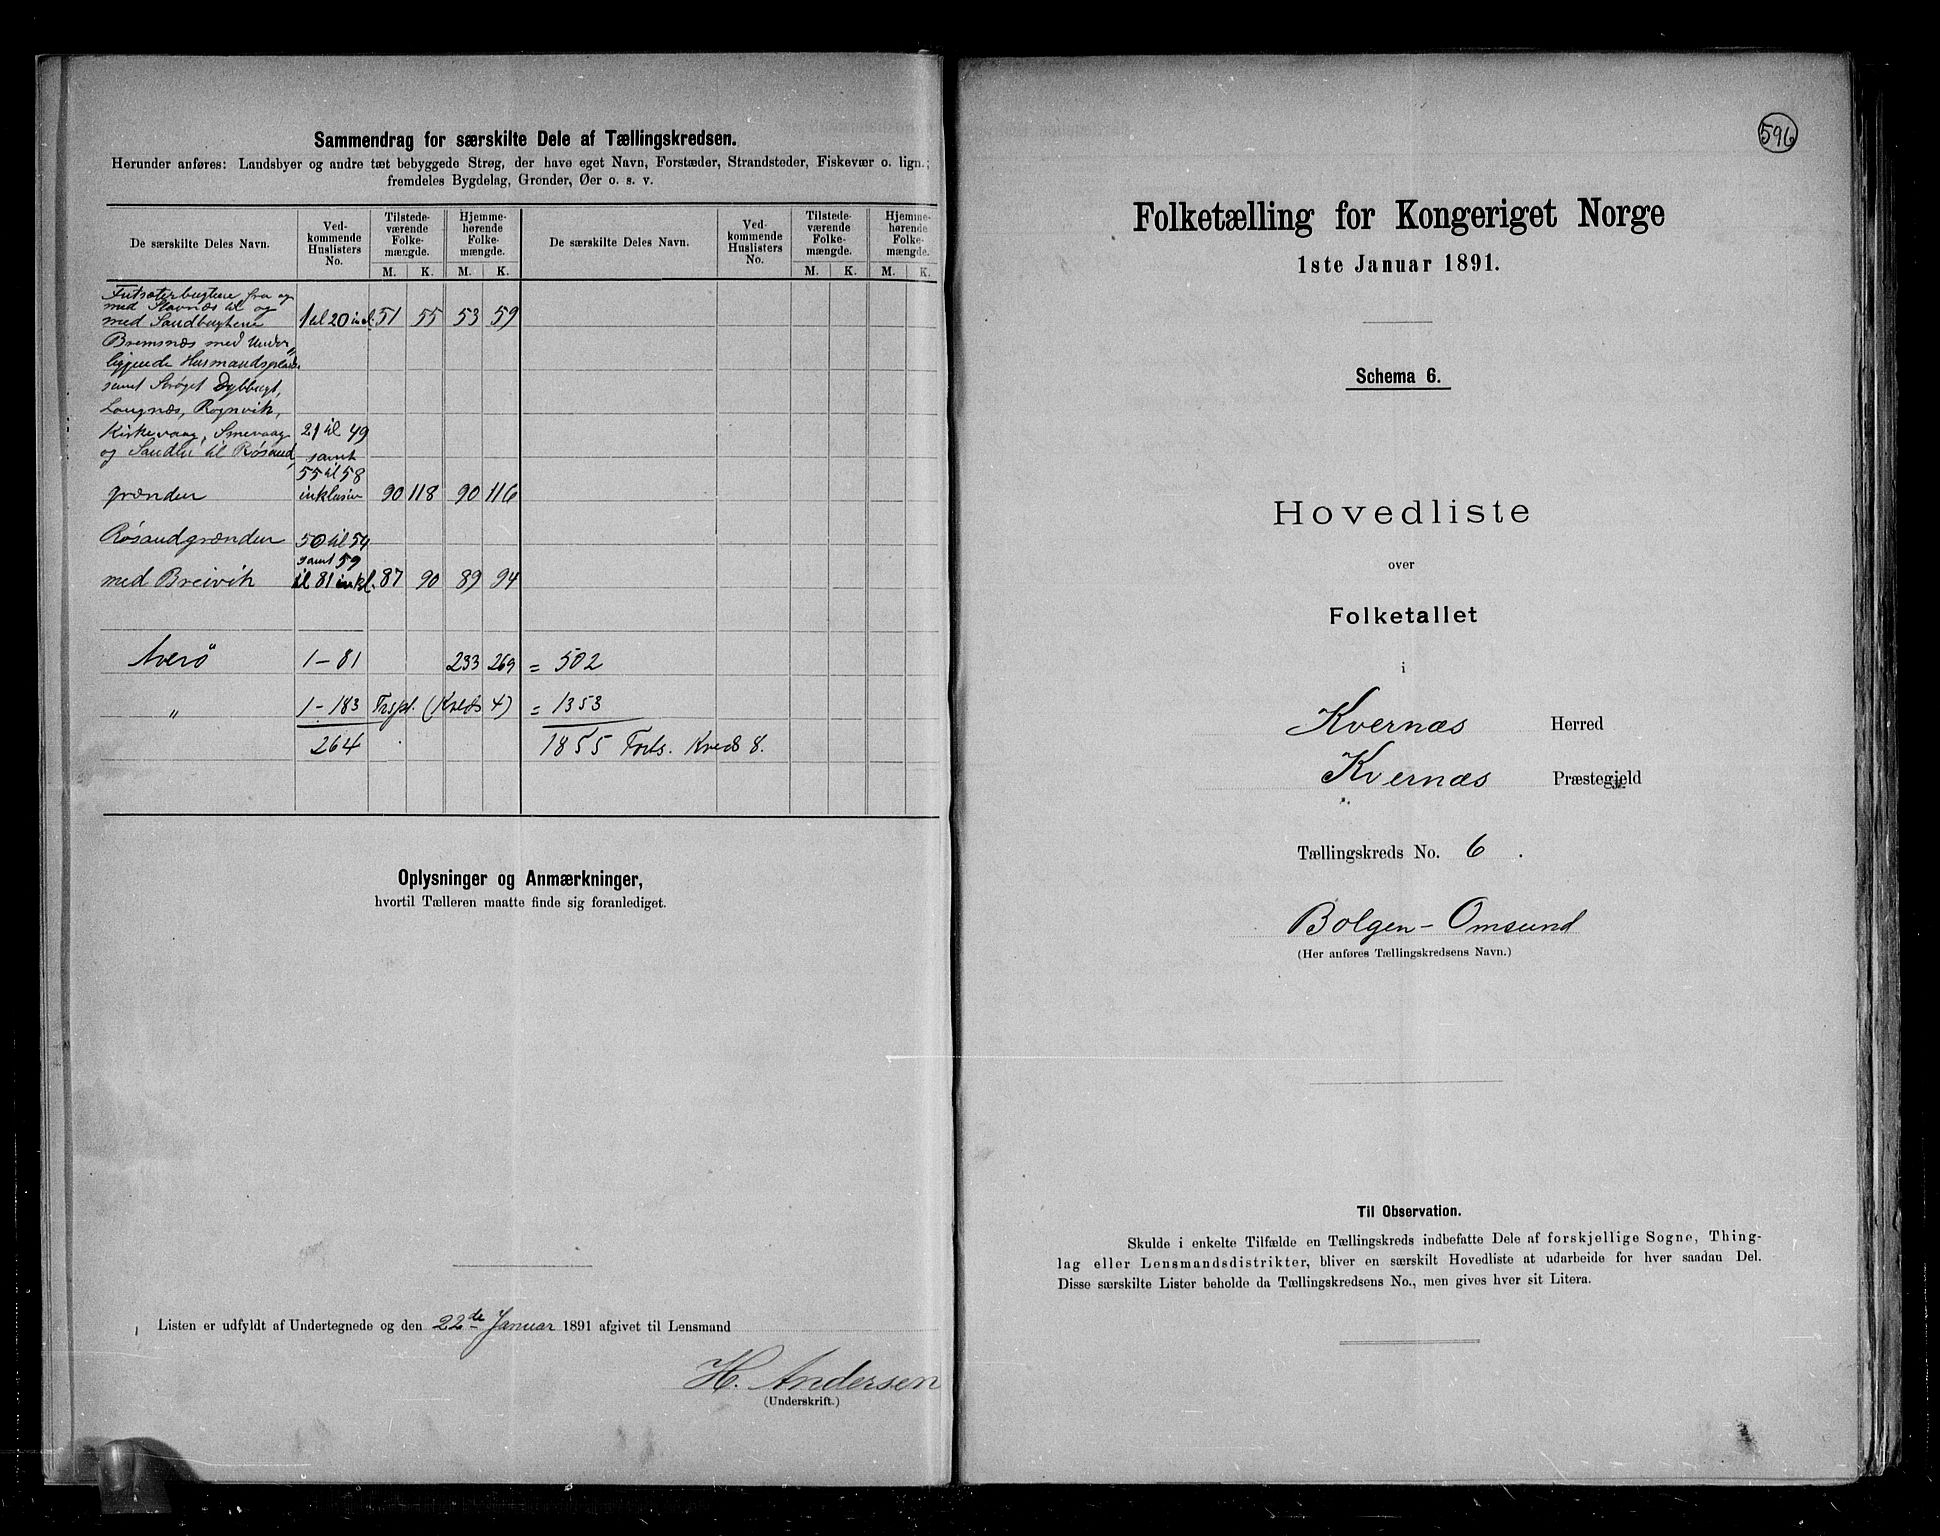 Sammendrag for særskilte Dele af Tællingskredsen.
Herunder anføres: Landsbyer og andre tæt bebyggede Strøg, der have eget Navn, Forstæder, Strandsteder, Fiskevær o. lign.;
fremdeles Bygdelag, Grender, Øer o. s. v.
De særskilte Deles Navn. Vedkommende Huslisters No. Tilstedeværende Folkemængde. Hjemmehørende Folkemængde. De særskilte Deles Navn. Vedkommende Huslisters No. Tilstedeværende Folkemængde. Hjemmehørende Folkemængde.
M. K. M. K. M. K. M. K.
Futsæterbugtene fra og
med Stavnæs til og
med Sandbugtene 1 til 20 incl. 51 55 53 59
Bremsnæs med Under-
liggende Husmandsplads
samt Strøget Dybbugt,
Langnæs, Rognvik,
Kirkevaag, Smevaag 21 til 49
og Sandlu til Røsand samt
55 til 58
grænden inklusiv 90 118 90 116
Røsandgrænden 50 til 54
samt 59
med Breivik til 81 inkl. 87 90 89 94
Averö 1-81 233 269 = 502
" 1-183 Trspt. (Kreds 4) = 1353
264 1855 Forts. Kreds 8.
Oplysninger og Anmærkninger,
hvortil Tælleren maatte finde sig foranlediget.
Listen er udfyldt af Undertegnede og den 22de Januar 1891 afgivet til Lensmand
H. Andersen
(Underskrift.)
596
Folketælling for Kongeriget Norge
1ste Januar 1891.
Schema 6.
Hovedliste
over
Folketallet
i
Kvernæs Herred
Kvernæs Præstegjeld
Tællingskreds No. 6.
Bolgen-Omsund
(Her anføres Tællingskredsens Navn.)
Til Observation.
Skulde i enkelte Tilfælde en Tællingskreds indbefatte Dele af forskjellige Sogne, Thing-
lag eller Lensmandsdistrikter, bliver en særskilt Hovedliste at udarbeide for hver saadan Del.
Disse særskilte Lister beholde da Tællingskredsens No., men gives hver sit Litera.